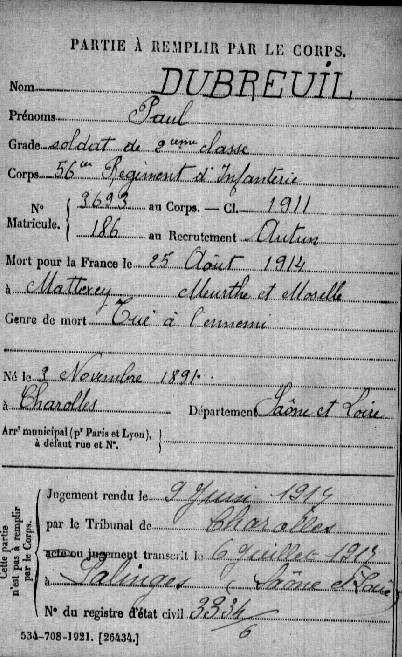 PARTIE À REMPLIR PAR LE CORPS.
Nom DUBREUIL
Prénoms Paul
Grade soldat de 2eme classe
Corps 56me Régiment d'Infanterie
N° Matricule. { 3623 au Corps. — Cl. 1911
186 au Recrutement Autun
Mort pour la France le 25 Août 1914
à Mattexey Meurthe et Moselle
Genre de mort Tué à l'ennemi
Né le 3 Novembre 1891.
à Charolles Département Saône et Loire
Arrt municipal (pr Paris et Lyon), à défaut rue et N°. {
Cette partie n'est pas à remplir par le Corps.
Jugement rendu le 9 Juin 1917
par le Tribunal de Charolles
acte ou jugement transcrit le 6 Juillet 1917
à Palinges (Saône et Loire)
N° du registre d'état civil 3334/6
534-708-1921. [26434.]